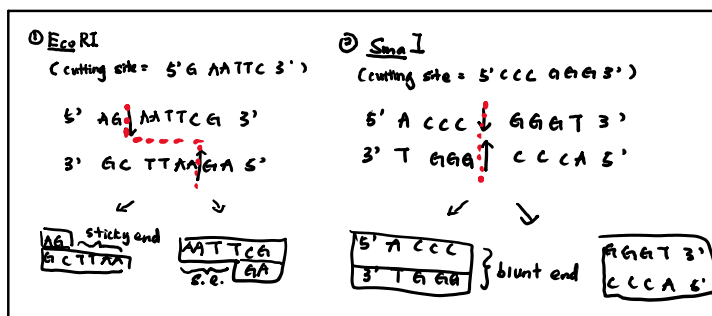 ① EcoRI
(cutting site = 5' G AATTC 3')
5' AG AATTCG 3'
3' GC TTAAGA 5'
AG sticky end
GCTTAA
AATTCG
s.e. GA
② SmaI
(cutting site = 5' CCC GGG 3')
5' A CCC GGGT 3'
3' T GGG CCCA 5'
5' A CCC
3' T GGG
blunt end
GGGT 3'
CCCA 5'